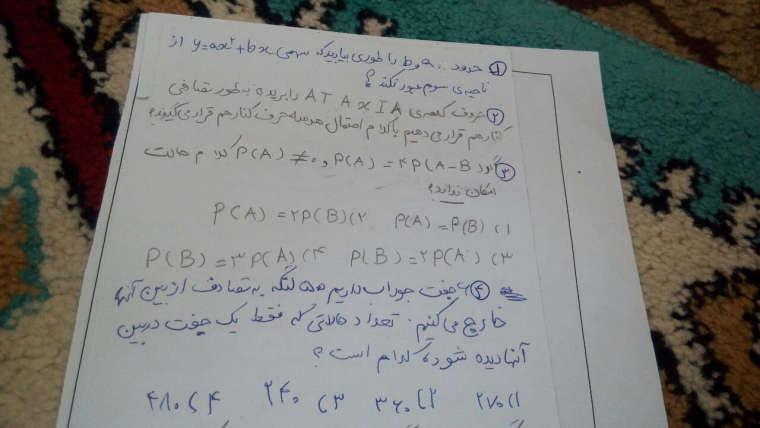 ① حدود a و b را طوری بیابید که سهمی y=ax²+bx از
ناحیه‌ی سوم عبور نکند؟
② حروف کلمه‌ی A T A X I A را بریده به طور تصادفی
کنار هم قرار می دهیم با کدام احتمال هر سه حرف کنار هم قرار می گیرند؟
③ اگر P(A) = ۴P(A-B و P(A) ≠ ۰ کدام حالت
امکان ندارد؟
۱) P(A) = P(B) ۲) P(A) = ۲P(B)
۳) P(B) = ۲P(A) ۴) P(B) = ۳P(A)
④ ۶ جفت جوراب داریم ۵ لنگه به تصادف از بین آنها
خارج می کنیم. تعداد حالاتی که فقط یک جفت در بین
آنها دیده شود کدام است؟
۱) ۲۷۰ ۲) ۳۶۰ ۳) ۲۴۰ ۴) ۴۸۰